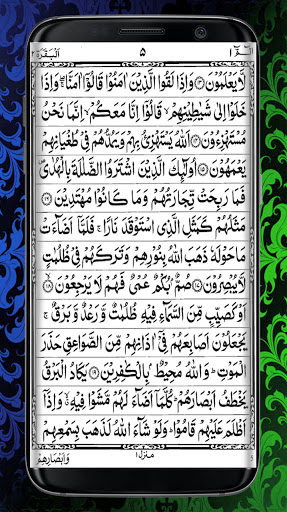 البقرة ٢ ٥ الٓمّٓ ١
لَّا يَعْلَمُوْنَ ﴿۱۳﴾ وَاِذَا لَقُوا الَّذِيْنَ اٰمَنُوْا قَالُوْٓا اٰمَنَّا ۖۚ وَاِذَا
خَلَوْا اِلٰى شَيٰطِيْنِهِمْ ۙ قَالُوْٓا اِنَّا مَعَكُمْ ۙ اِنَّمَا نَحْنُ
مُسْتَهْزِءُوْنَ ﴿۱۴﴾ اَللّٰهُ يَسْتَهْزِئُ بِهِمْ وَيَمُدُّهُمْ فِيْ طُغْيَانِهِمْ
يَعْمَهُوْنَ ﴿۱۵﴾ اُولٰٓئِكَ الَّذِيْنَ اشْتَرَوُا الضَّلٰلَةَ بِالْهُدٰى ۪
فَمَا رَبِحَتْ تِّجَارَتُهُمْ وَمَا كَانُوْا مُهْتَدِيْنَ ﴿۱۶﴾
مَثَلُهُمْ كَمَثَلِ الَّذِي اسْتَوْقَدَ نَارًا ۚ فَلَمَّآ اَضَآءَتْ
مَا حَوْلَهٗ ذَهَبَ اللّٰهُ بِنُوْرِهِمْ وَتَرَكَهُمْ فِيْ ظُلُمٰتٍ
لَّا يُبْصِرُوْنَ ﴿۱۷﴾ صُمٌّۢ بُكْمٌ عُمْيٌ فَهُمْ لَا يَرْجِعُوْنَ ﴿۱۸﴾
اَوْ كَصَيِّبٍ مِّنَ السَّمَآءِ فِيْهِ ظُلُمٰتٌ وَّرَعْدٌ وَّبَرْقٌ ۚ
يَجْعَلُوْنَ اَصَابِعَهُمْ فِيْٓ اٰذَانِهِمْ مِّنَ الصَّوَاعِقِ حَذَرَ
الْمَوْتِ ؕ وَاللّٰهُ مُحِيْطٌۢ بِالْكٰفِرِيْنَ ﴿۱۹﴾ يَكَادُ الْبَرْقُ
يَخْطَفُ اَبْصَارَهُمْ ؕ كُلَّمَآ اَضَآءَ لَهُمْ مَّشَوْا فِيْهِ ۙ وَاِذَآ
اَظْلَمَ عَلَيْهِمْ قَامُوْا ؕ وَلَوْ شَآءَ اللّٰهُ لَذَهَبَ بِسَمْعِهِمْ
منزل ١
وَاَبْصَارِهِمْ